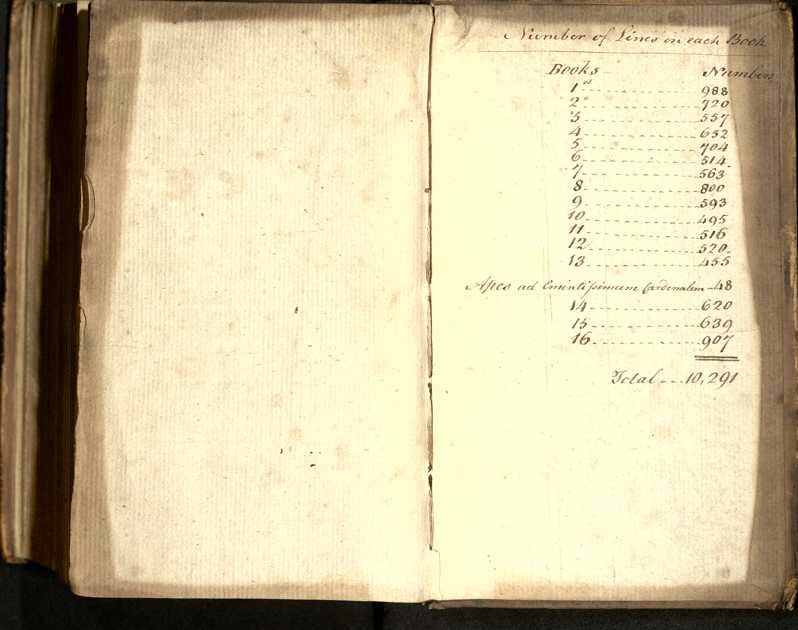 Number of Lines in each Book
Books Numbers
1st 988
2d 720
3 557
4 652
5 704
6 514
7 563
8 800
9 593
10 495
11 516
12 520
13 455
Apes ad Eminentissimum Cardenalem 48
14 620
15 639
16 907
Total 10,291